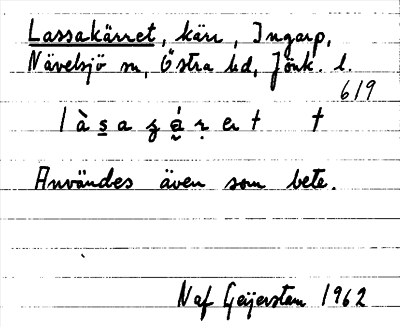 Lassakärret, kärr, Ingarp,
Nävelsjö sn, Östra hd, Jönk. l.
619
Användes även som bete.
Naf Geijerstam 1962